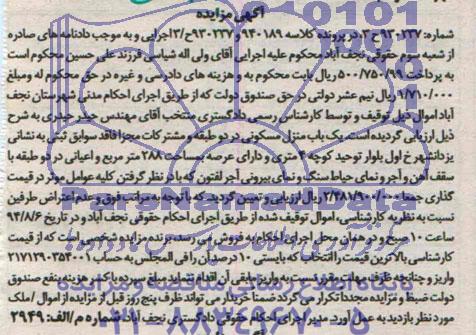 آگهی مزایده
شماره: ۹۳۰۲۳۷ح ۳، در پرونده کلاسه ۹۴۰۱۸۹ و ۹۳۰۲۳۷ح/۳اجرایی و به موجب دادنامه های صادره
از شعبه سوم حقوقی نجف آباد محکوم علیه اجرایی آقای ولی اله شیاسی فرزند علی حسین محکوم است
به پرداخت ۵۰۰/۷۵۰/۹۹ ریال بابت محکوم به و هزینه های دادرسی و غیره در حق محکوم له ومبلغ
۱/۷۱۰/۰۰۰ ریال نیم عشر دولتی در حق صندوق دولت که از طریق اجرای احکام مدنی شهرستان نجف
آباد اموال ذیل توقیف و توسط کارشناس رسمی دادگستری منتخب آقای مهندس حیدر حیدری به شرح
ذیل ارزیابی گردیده است. یک باب منزل مسکونی در دو طبقه و مشترکات مجزا فاقد سوابق ثبتی به نشانی
یزدانشهر خ اول بلوار توحید کوچه ۴ متری و دارای عرصه بمساحت ۲۸۸ متر مربع و اعیانی در دو طبقه با
سقف آهن و آجر و نمای حیاط سنگ و نمای بیرونی آجر لفتون که با در نظر گرفتن کلیه عوامل موثر در قیمت
گذاری جمعا ۲/۴۸۱/۹۰۰/۰۰۰ ریال ارزیابی و تعیین گردید که با توجه به مراتب فوق و عدم اعتراض طرفین
نسبت به نظریه کارشناسی، اموال توقیف شده از طریق اجرای احکام حقوقی نجف آباد و در تاریخ ۹۴/۸/۶
ساعت ۱۰ صبح و در همان محل اجرای احکام به فروش می رسد، برنده مزایده شخصی است که از قیمت
کارشناسی بالاترین قیمت را انتخاب که بایستی ۱۰ درصد آن را فی المجلس به حساب ۲۱۷۱۲۹۰۳۵۴۰۰۱
واریز و چنانچه ظرف مهلت مقرر نسبت به واریز مابقی آن اقدام ننماید مبلغ سپرده با کسر هزینه بنفع صندوق
دولت ضبط و مزایده مجددا تکرار می گردد ضمنا خریدار می تواند ظرف پنج روز قبل از مزایده از اموال / ملک
مورد نظر بازدید به عمل آورد. مدیر اجرای احکام حقوقی دادگستری نجف آباد. شماره م/الف: ۲۹۴۹
پایگاه اطلاع رسانی مناقصه و مزایده
۰۲۱-۸۸۳۴۹۶۷۰-۵